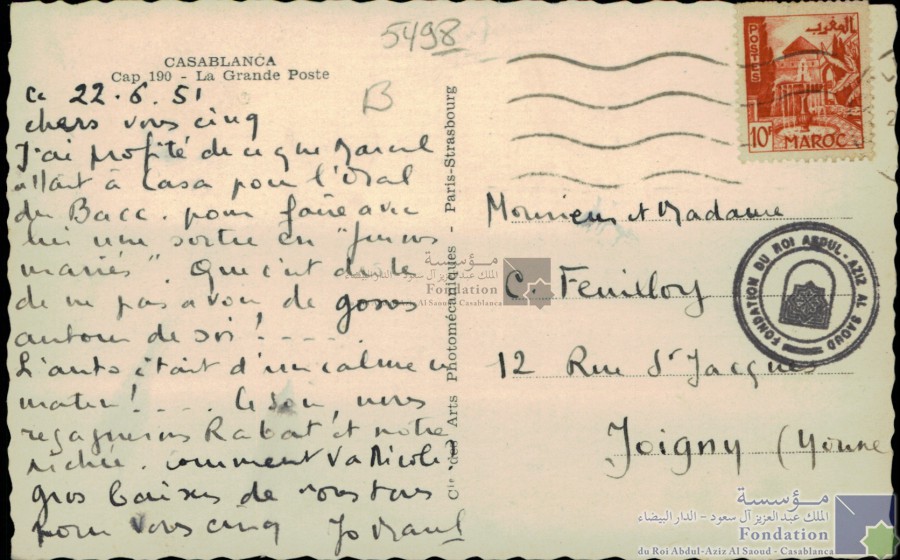 5498
CASABLANCA
Cap 190 - La Grande Poste
B
Ce 22.6.51
chers vous cinq
J'ai profité de ce que Marcel
allait à Casa pour l'Oral
du Bacc. pour faire avec
lui une sortie en "jeunes
mariés". Que c'est drôle
de ne pas avoir de gosses
autour de soi! .....
L'auto était d'un calme ce
matin! .... Ce soir, nous
regagnerons Rabat et notre
nichée. Comment va Nicole?
gros baisers de nous tous
pour vous cinq
Cie des Arts Photomécaniques - Paris-Strasbourg
POSTES
المغرب
10F
MAROC
Monsieur et Madame
C. Feuilloy
12 Rue St Jacques
Joigny (Yonne
FONDATION DU ROI ABDUL-AZIZ AL SAOUD
مؤسسة
الملك عبد العزيز آل سعود - الدار البيضاء
Fondation
Al Saoud - Casablanca
مؤسسة
الملك عبد العزيز آل سعود - الدار البيضاء
Fondation
du Roi Abdul-Aziz Al Saoud - Casablanca